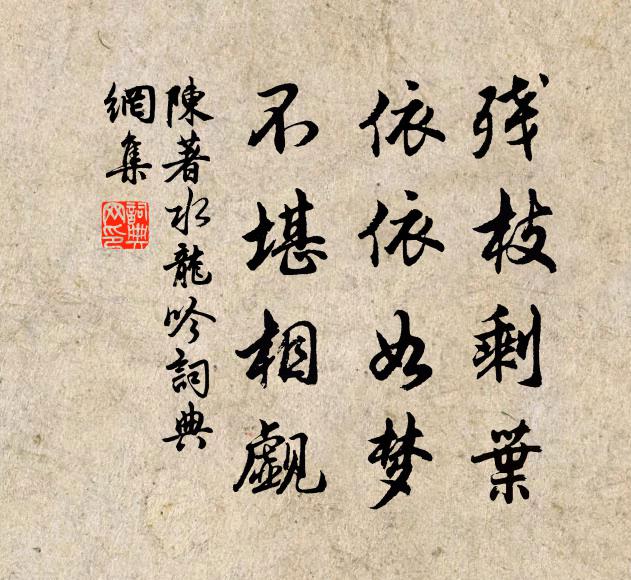 残枝剩葉
依依如梦
不堪相觑
陳著水龍吟詞典
網集
詞典
网印